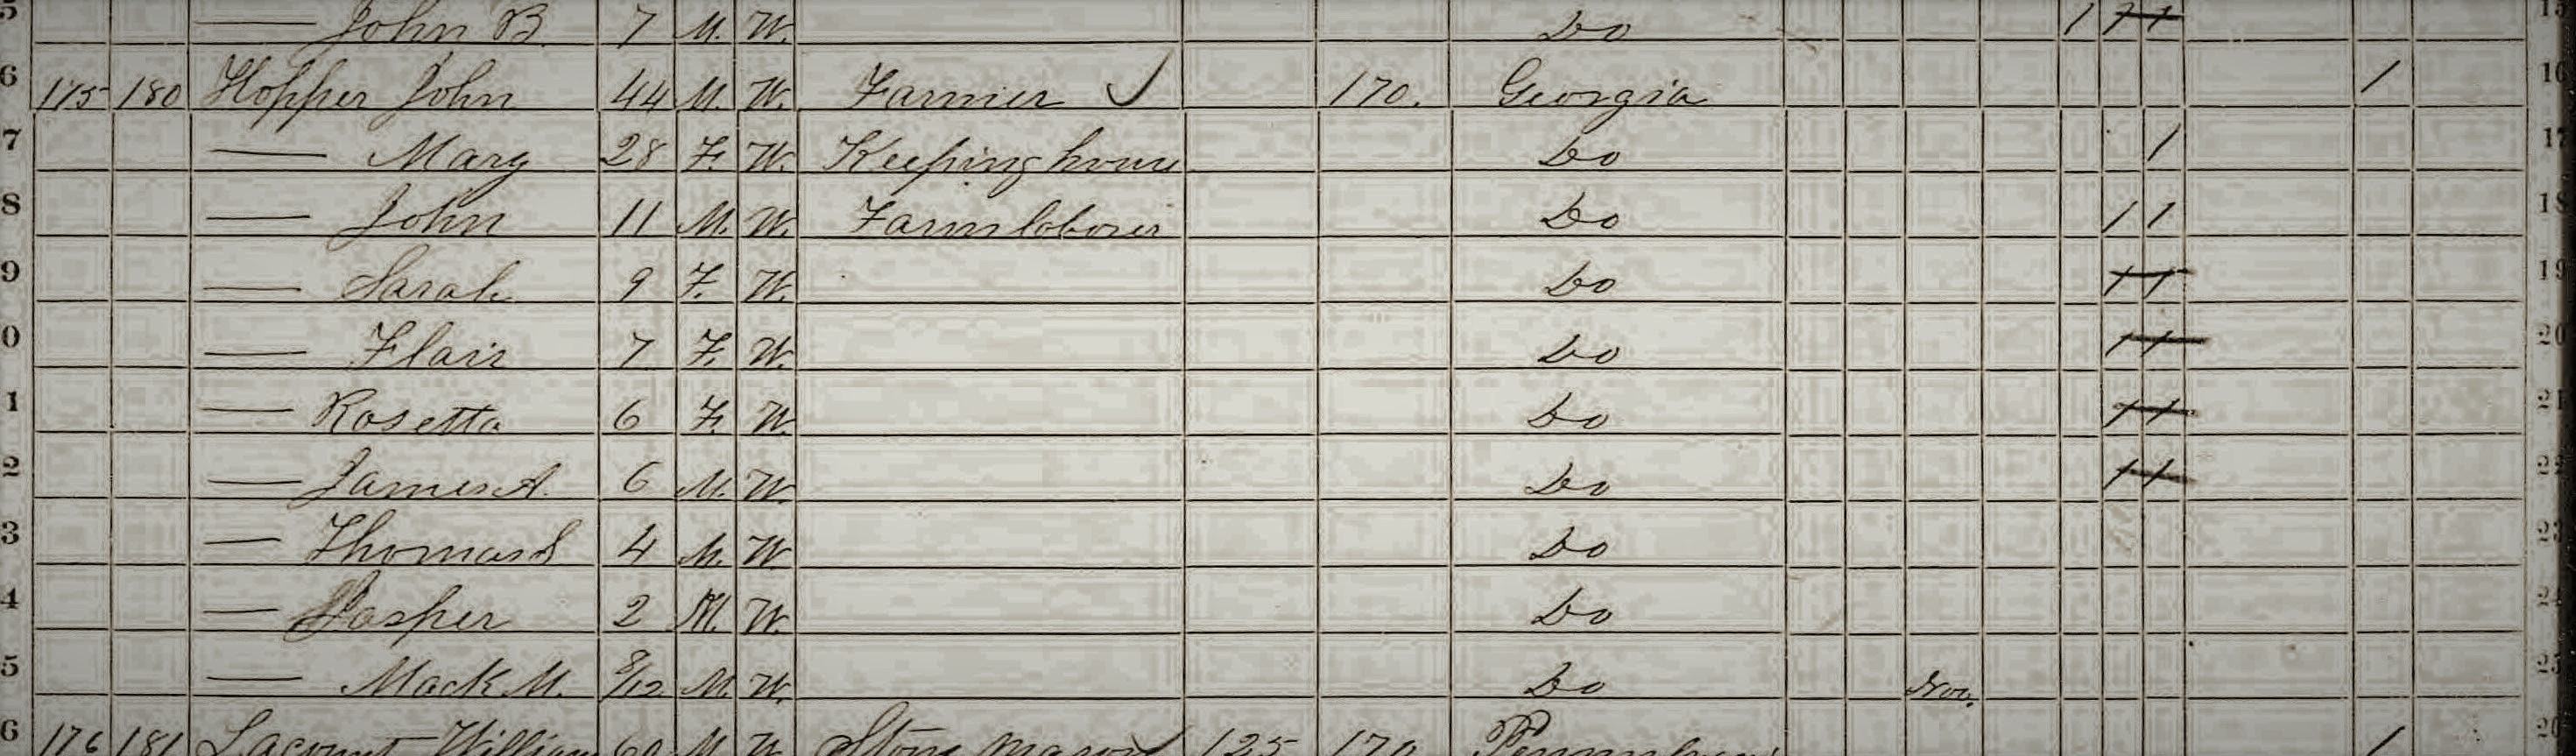 5 — John B. 7 M. W. Do 1 1 1 15
6 175 180 Hopper John 44 M. W. Farmer 170. Georgia 1 16
7 — Mary 28 F. W. Keeping house Do 1 17
8 — John 11 M. W. Farm laborer Do 1 1 18
9 — Sarah 9 F. W. Do 1 1 19
0 — Flair 7 F. W. Do 1 1 20
1 — Rosetta 6 F. W. Do 1 1 21
2 — James A. 6 M. W. Do 1 1 22
3 — Thomas S 4 M. W. Do 23
4 — Jasper 2 M. W. Do 24
5 — Mack M. 8/12 M. W. Do Nov. 25
6 176 181 William 60 M W Stone mason 125 170 1 26